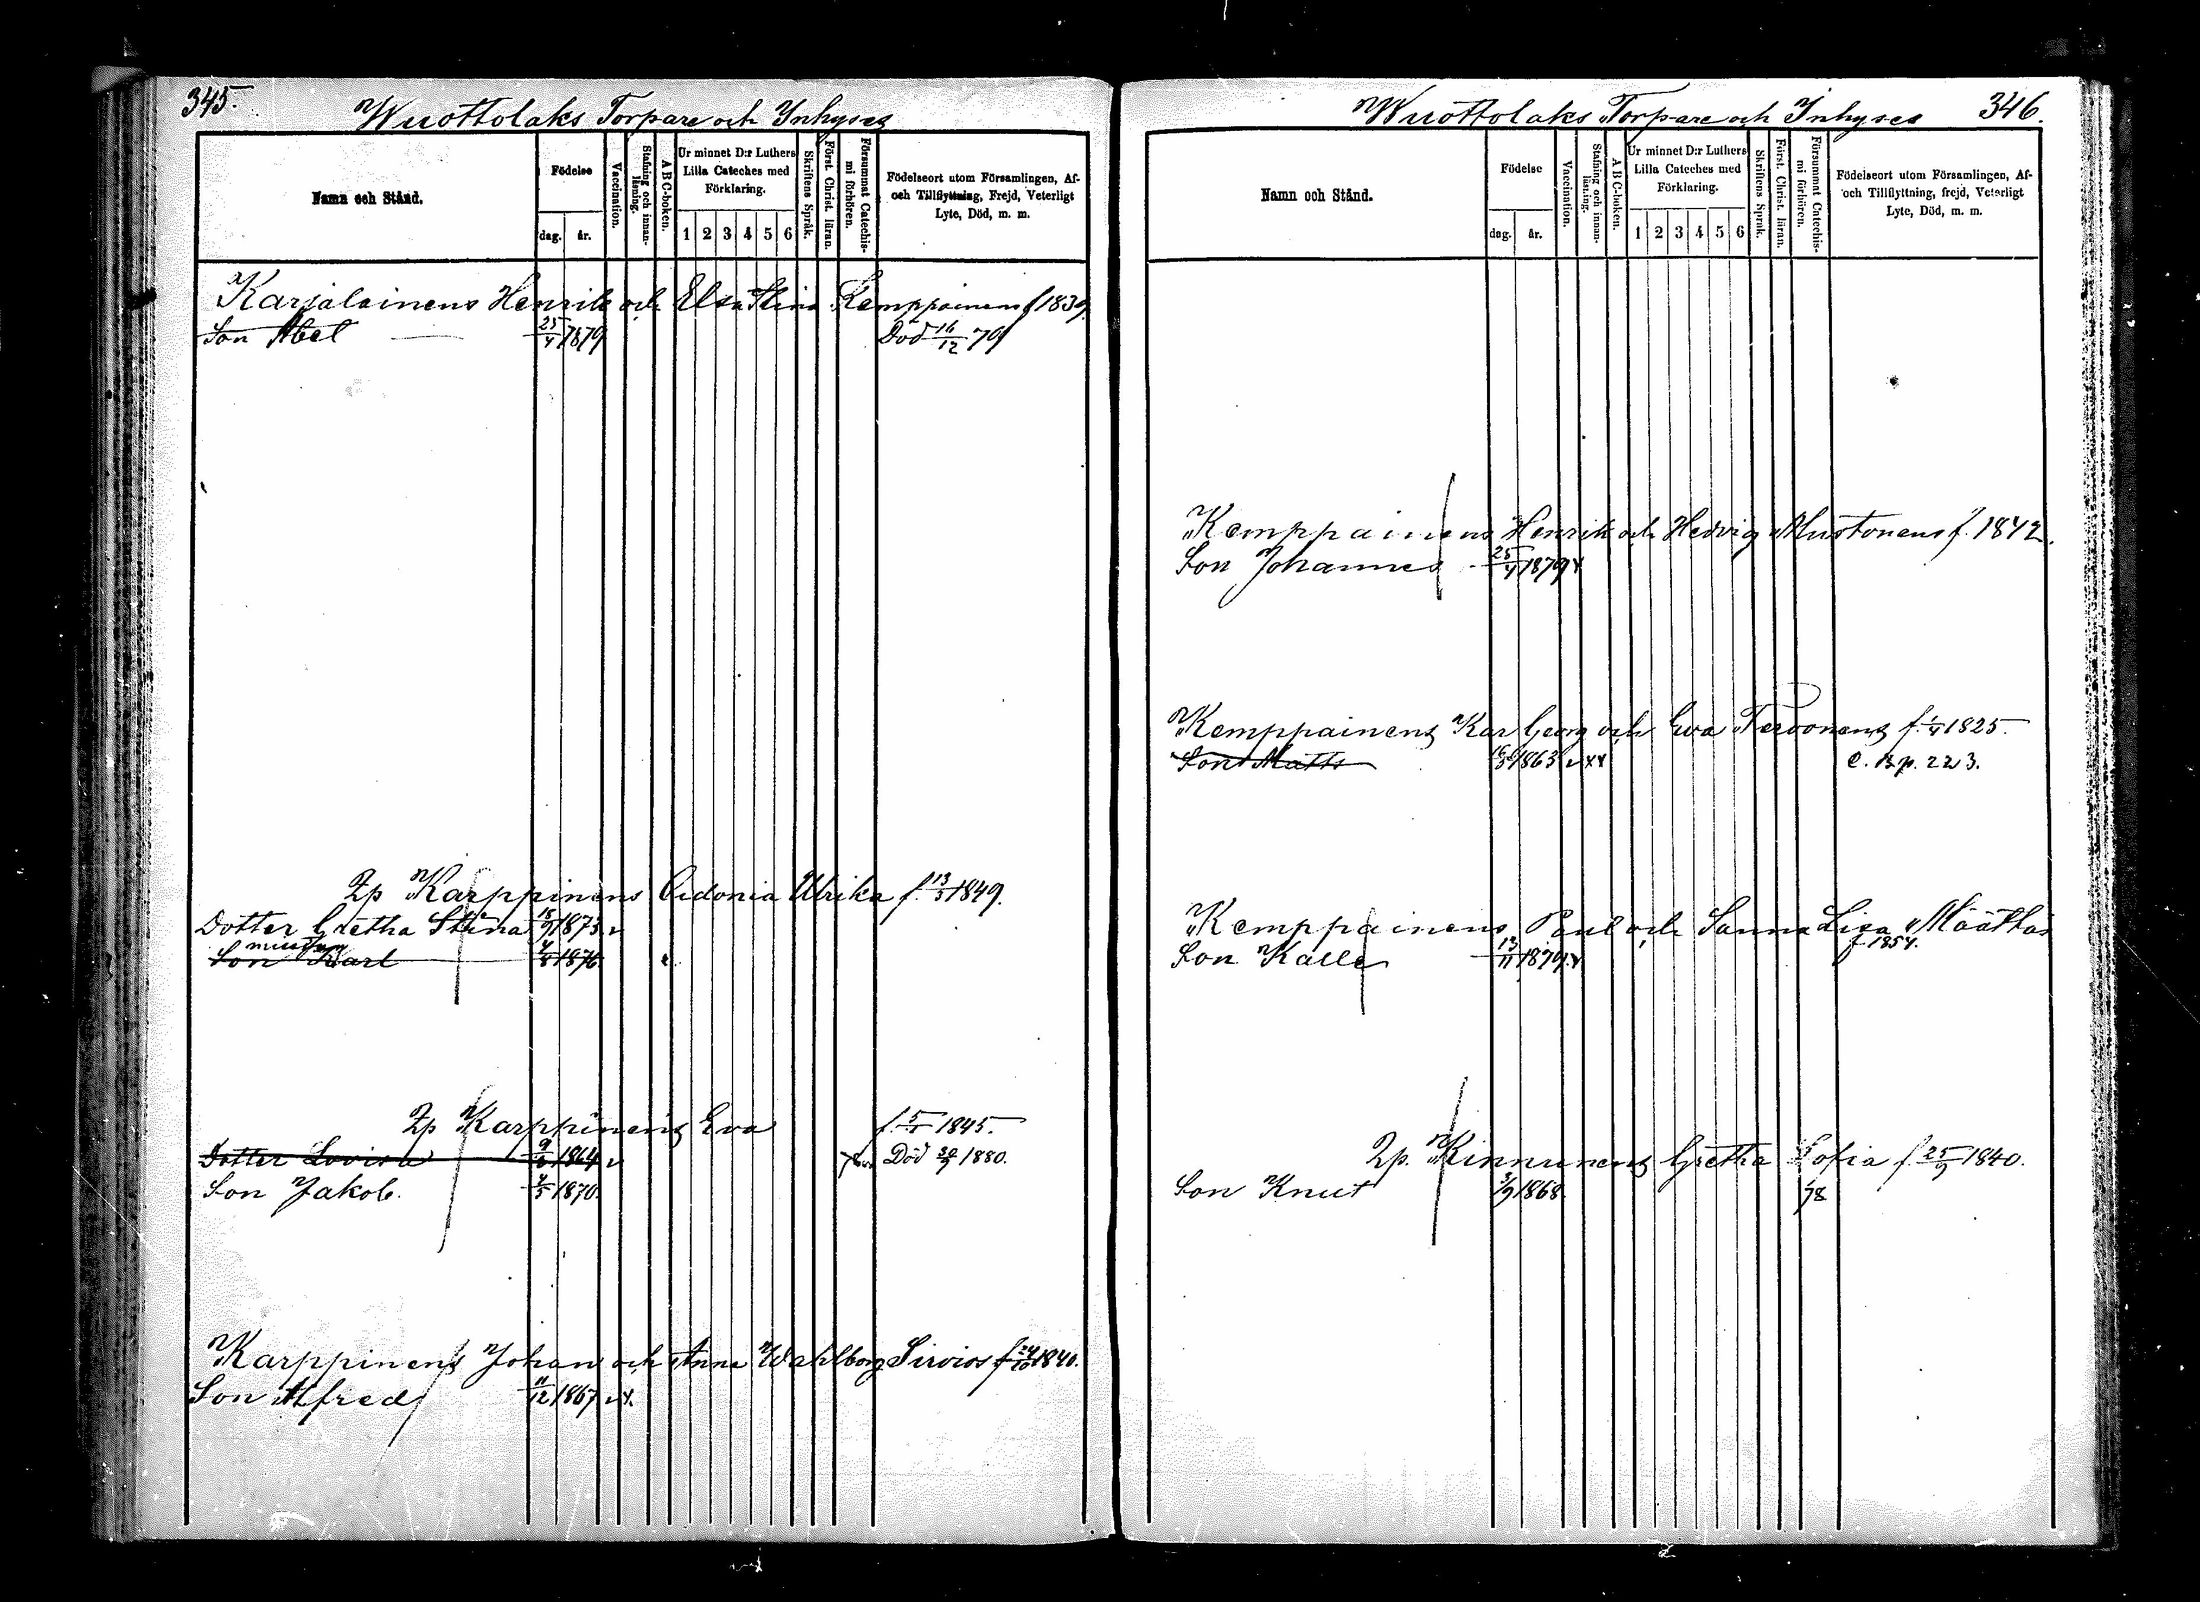 345.
Wuottolaks Torpare och Inhyses
Namn och Stånd.
Födelse
dag. år.
Vaccination.
Stafning och innanläsning.
A B C-boken.
Ur minnet D:r Luthers Lilla Cateches med Förklaring.
1 2 3 4 5 6
Skriftens Språk.
Först. Christ. läran.
Försummat Catechismi förhören.
Födelseort utom Församlingen, Af- och Tillflyttning, Frejd, Veterligt Lyte, Död, m. m.
Karjalainens Henrik och Elsa Stina Kemppainens f 1839.
Son Abel 25/4 1879 Död 16/12 79
Zp Karppinens Cidonia Ulrika f. 13/3 1849.
Dotter Gretha Stina 18/9 1873 v
Son Karl 4/8 1876
Zp Karppinens Eva 1845.
Dotter Lovisa 1864 v Död 1880.
Son Jakob. 1870.
Karppinens Johan och Anna Wahlborg Sirvios f 24/10 1840.
Son Alfred 11/12 1867 v x.
346.
Wuottolaks Torpare och Inhyses
Namn och Stånd.
Födelse
dag. år.
Vaccination.
Stafning och innanläsning.
A B C-boken.
Ur minnet D:r Luthers Lilla Cateches med Förklaring.
1 2 3 4 5 6
Skriftens Språk.
Först. Christ. läran.
Försummat Catechismi förhören.
Födelseort utom Församlingen, Af- och Tillflyttning, frejd, Veterligt Lyte, Död, m. m.
Kemppainens Henrik och Hedvig Mustonens f. 1842.
Son Johannes 25/4 1879 x
Kemppainens Karl Georg och Eva Tervonens f. 1825.
Son Matts 1863 v xx C. B p. 223.
Kemppainens Paul och Sanna Lisa Määttäs
f 1854.
Son Kalle 13/11 1879 x
Zp. Kinnunens Gretha Sofia f. 25/9 1840.
Son Knut 1868 78